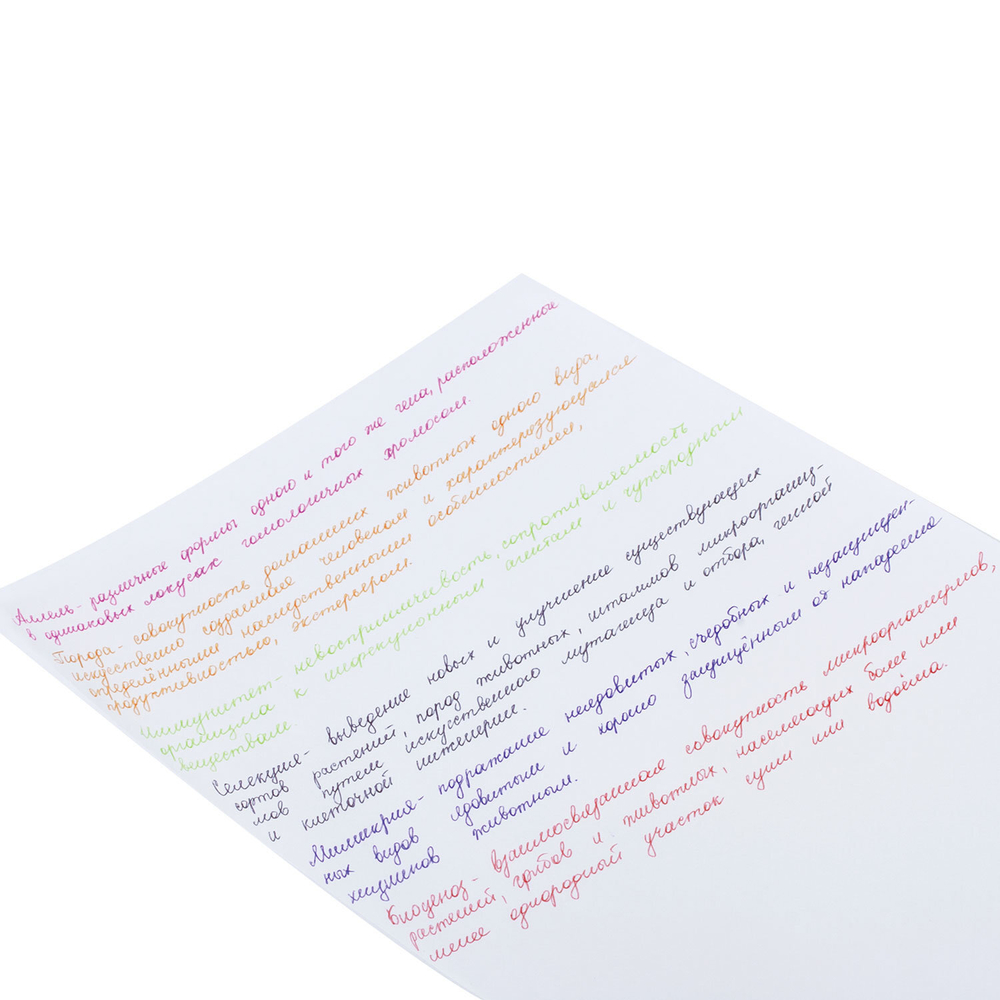 Аллель- различные формы одного и того же гена, расположенные
в одинаковых локусах гомологичных хромосом.
Порода- совокупность домашних животных одного вида,
искусственно созданная человеком и характеризующаяся
определёнными наследственными особенностями,
продуктивностью, экстерьером.
Иммунитет- невосприимчивость, сопротивляемость
организма к инфекционным агентам и чужеродным
веществам
Селекция- выведение новых и улучшение существующих
сортов растений, пород животных, штаммов микроорганиз-
мов путем искусственного мутагенеза и отбора, генной
и клеточной инженерии.
Мимикрия- подражание неядовитых, съедобных и незащищен-
ных видов ядовитым и хорошо защищённым от нападения
хищников животным.
Биоценоз- взаимосвязанная совокупность микроорганизмов,
растений, грибов и животных, населяющих более или
менее однородный участок суши или водоёма.